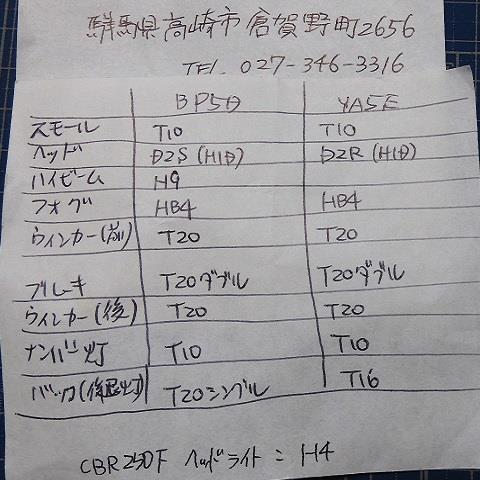 群馬県高崎市倉賀野町2656
TEL 027-346-3316
BP5D YA5E
スモール T10 T10
ヘッド D2S (HID) D2R (HID)
ハイビーム H9
フォグ HB4 HB4
ウィンカー(前) T20 T20
ブレーキ T20ダブル T20ダブル
ウィンカー(後) T20 T20
ナンバー灯 T10 T10
バック(後退灯) T20シングル T16
CBR250F ヘッドライト = H4